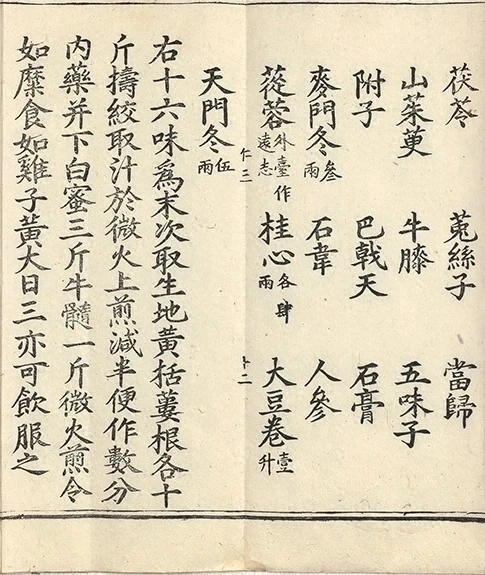 茯苓 菟絲子 當歸
山茱萸 牛膝 五味子
附子 巴戟天 石膏
麥門冬叁兩 石韋 人參
蓯蓉外臺作遠志 桂心各肆兩 大豆卷壹升
天門冬伍兩
右十六味爲末次取生地黃括蔞根各十
斤擣絞取汁於微火上煎減半便作數分
内藥并下白蜜三斤牛髓一斤微火煎令
如糜食如雞子黃大日三亦可飲服之